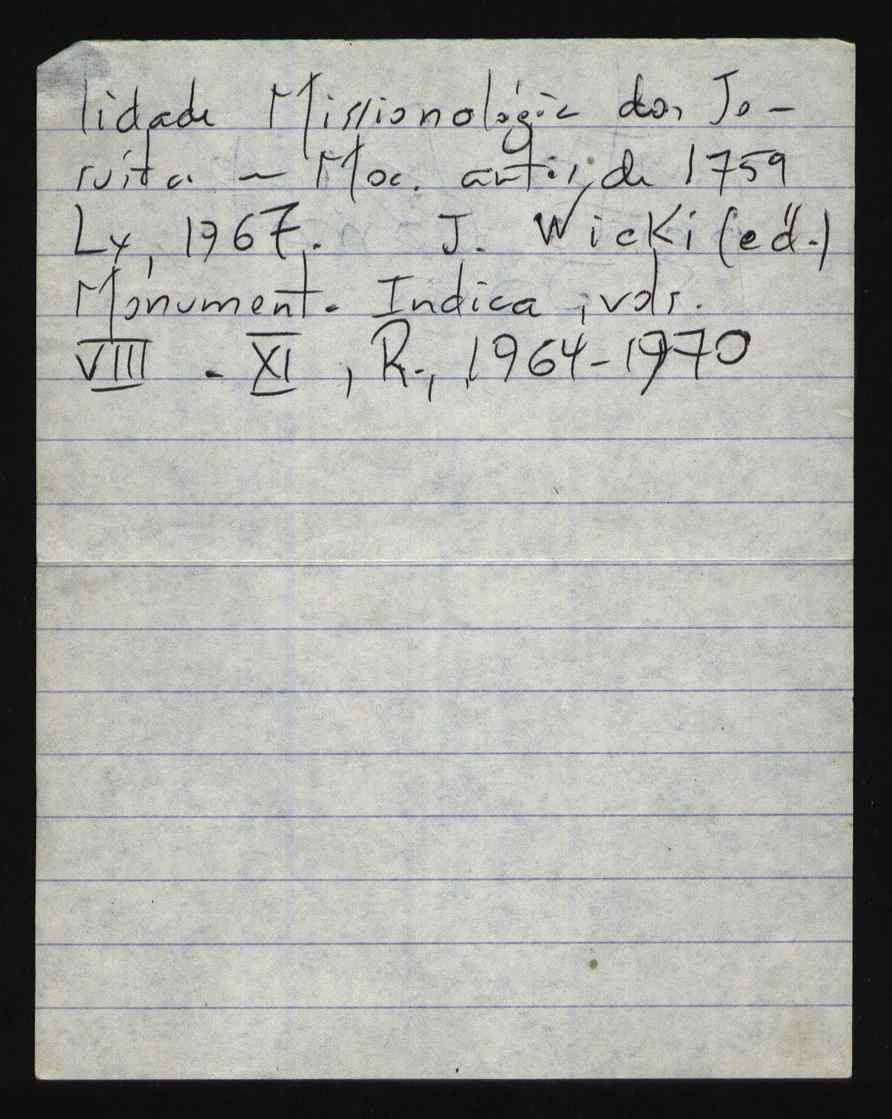 lidade Missionológic dos Je-
suíta. - Moc. antes de 1759
Lx, 1967. J. Wicki (ed.)
Monument. Indica, vols.
VIII - XI, R., 1964-1970